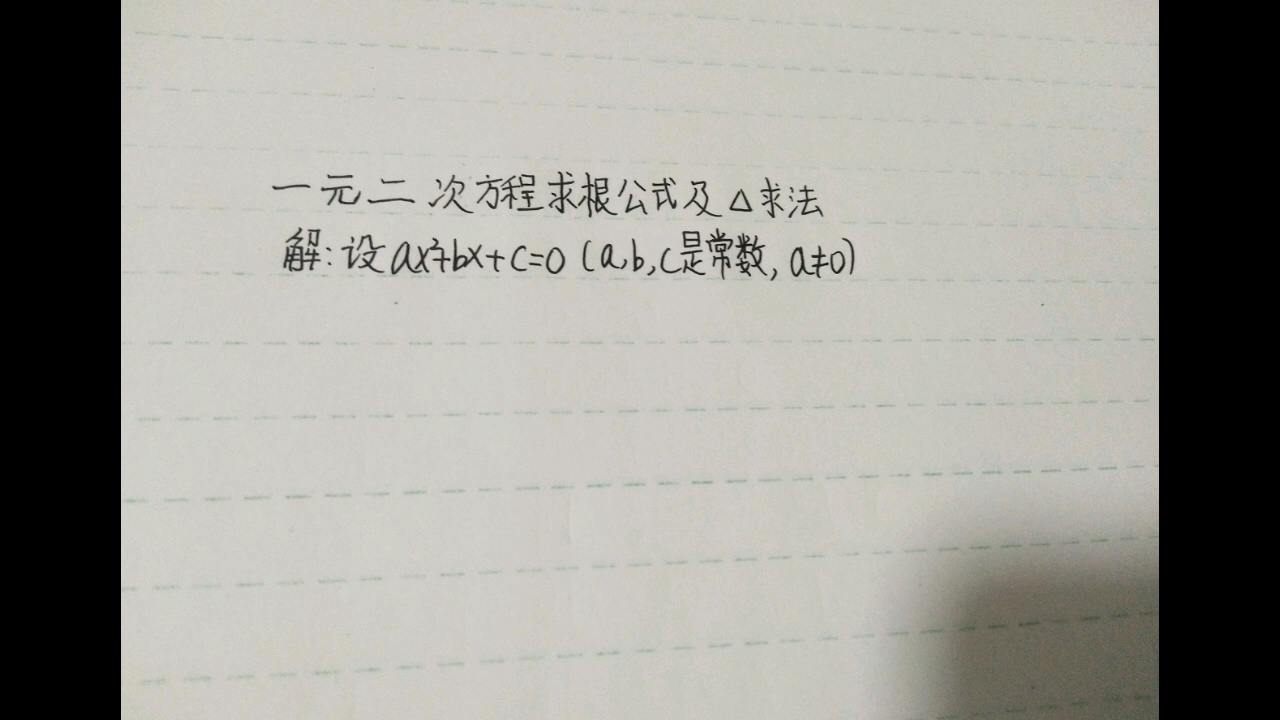 一元二次方程求根公式及△求法
解:设ax²+bx+c=0(a,b,c是常数,a≠0)